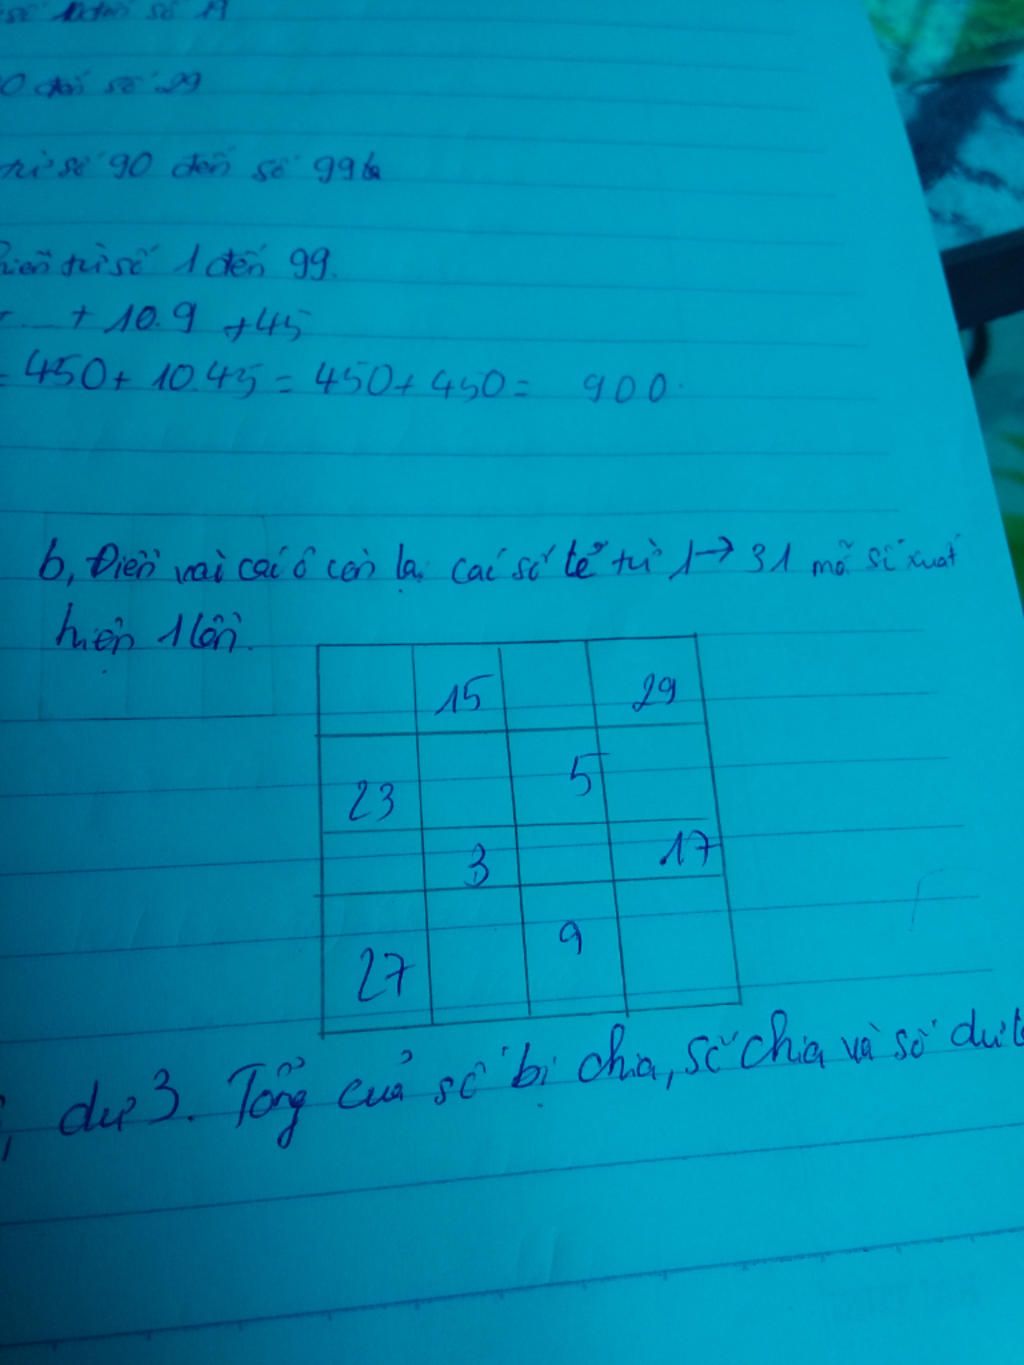 số 10 đến số 19
0 đến số 29
từ số 90 đến số 99 là
hiên từ số 1 đến 99.
+ ... + 10.9 + 45
= 450 + 10.45 = 450 + 450 = 900.
b, Điền vài cái ô còn lạ, các số lẻ từ 1 → 31 mỗ số xuất
hiện 1 lần.
15 29
23 5
3 17
27 9
, dư 3. Tổng của số bị chia, số chia và số dư